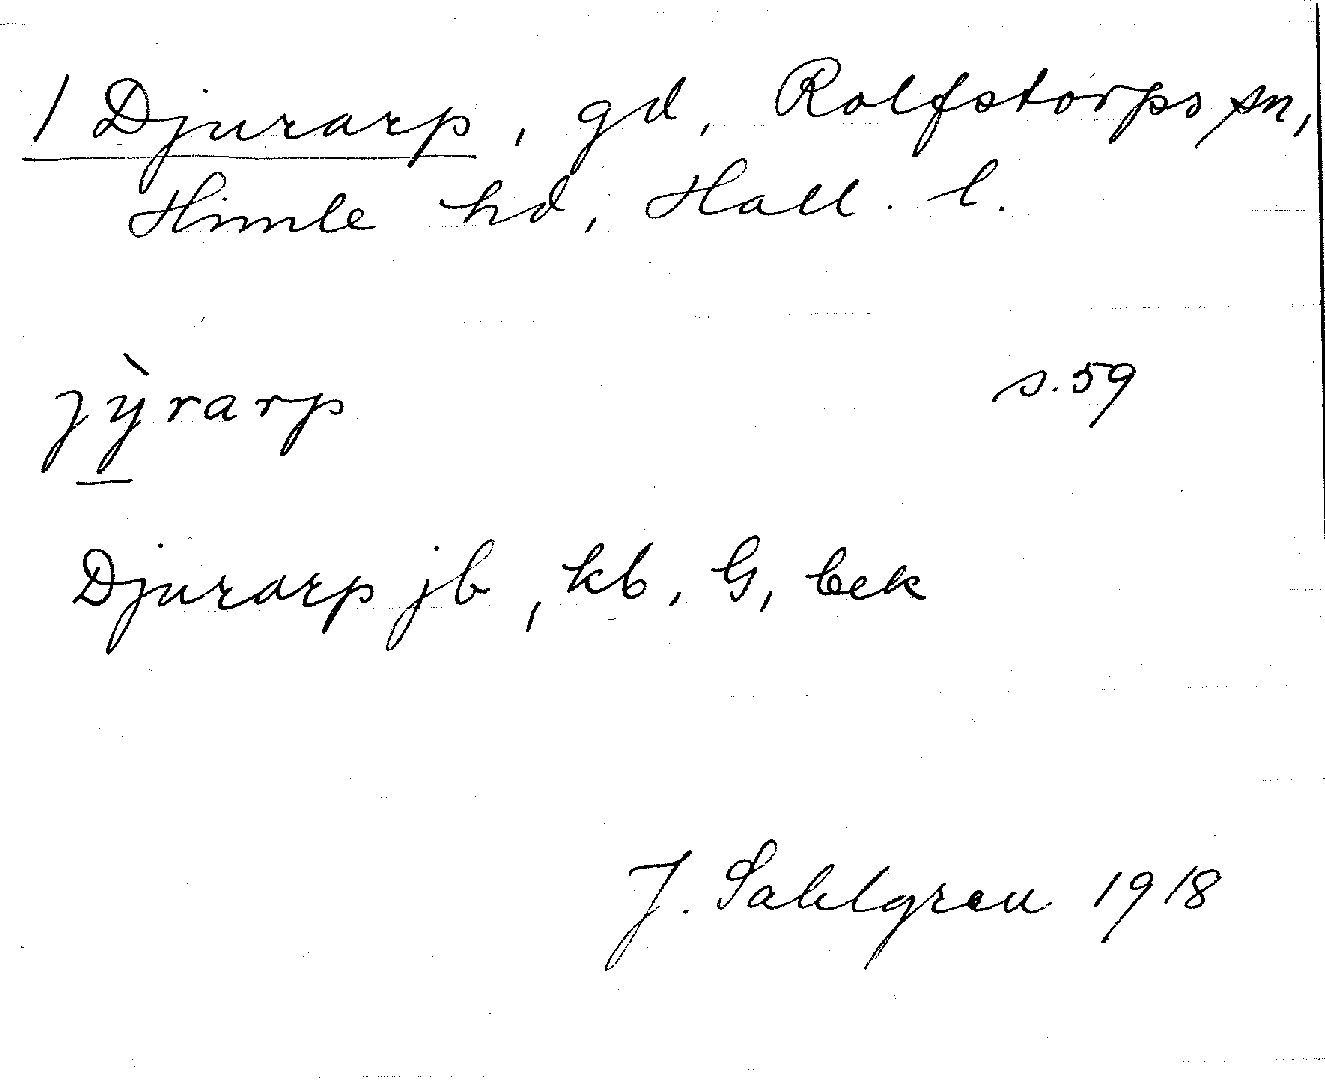 1 Djurarp, gd, Rolfstorps sn,
Himle hd, Hall. l.
jỳrarp s. 59
Djurarp jb, kb, G, bek
J. Sahlgren 1918